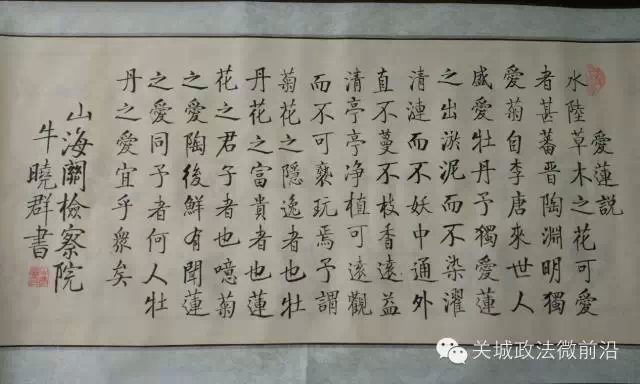 愛蓮説
水陸草木之花可愛
者甚蕃晋陶淵明獨
愛菊自李唐來世人
盛愛牡丹予獨愛蓮
之出淤泥而不染濯
清漣而不妖中通外
直不蔓不枝香遠益
清亭亭净植可遠觀
而不可褻玩焉予謂
菊花之隱逸者也牡
丹花之富貴者也蓮
花之君子者也噫菊
之愛陶後鮮有聞蓮
之愛同予者何人牡
丹之愛宜乎衆矣
山海關檢察院
牛曉群書
关城政法微前沿